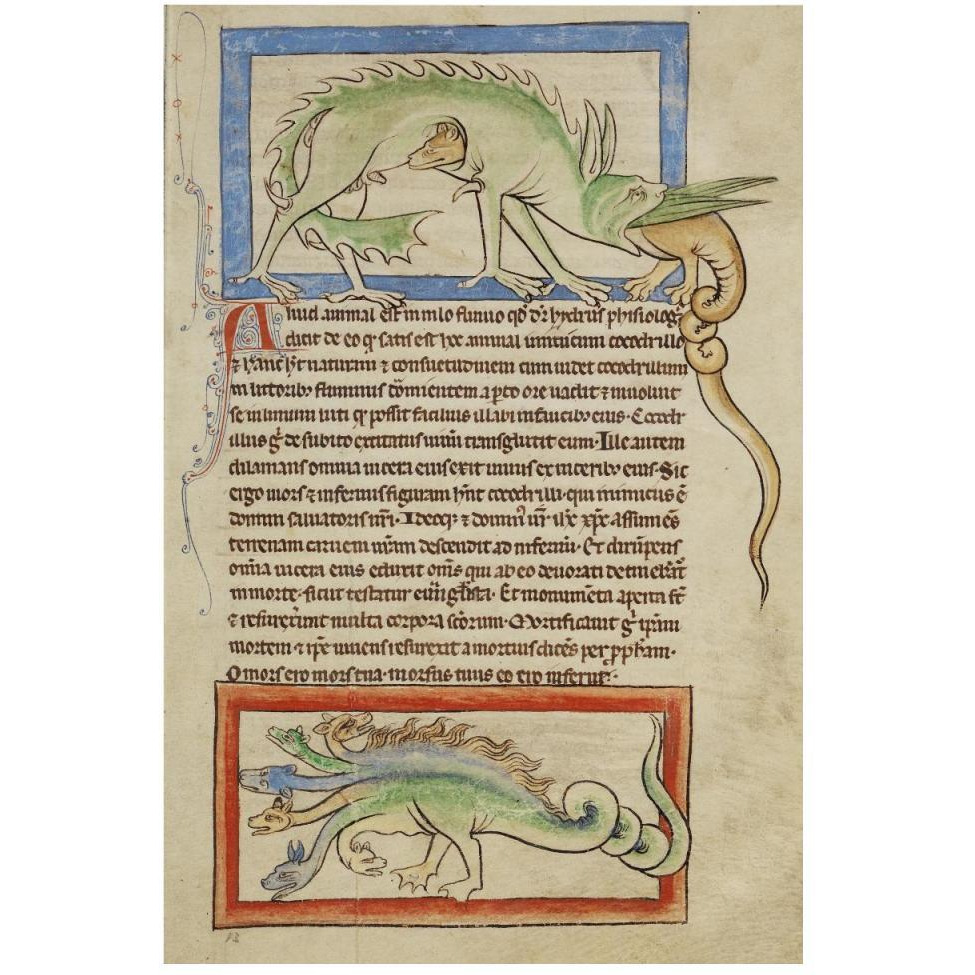 Aliud animal est in nilo fluuio qd̄ dr̄ hydrus phisiolog᷒
dicit de eo qr satis est hoc animal inimicum cocodrillo
⁊ hanc hт̄ naturam ⁊ consuetudinem cum uidet cocodrillum
in littorib; fluminis dōrmientem apto ore uadit ⁊ inuoluit
se in limum luti qr possit facilius illabi in faucib; eius. Cocodr
illus g̊ desubito excitatus uiuum transglutit eum. Ille autem
dilanians omnia uicera eius exit uiuus ex uicerib; eius. Sic
ergo mors ⁊ infernus figuram hn̄t cocodrilli. qui inimicus ē
domini saluatoris nr̄i. Ideoq; ⁊ domin᷒ nr̄ ih̄c xp̄c assumēs
terrenam carnem nr̄am descendit ad infernū. Et dirūpens
om̄ia uicera eius eduxit om̄s qui ab eo deuorati detinebāt̄
in morte. sicut testatur euu̅ngl̄ista. Et monumēta aperta st̄
⁊ resurexerunt multa corpora scōrum. Mortificauit g̊ ip̄am
mortem ⁊ ip̄e uiuens resurexit a mortuis dicēs per ꝓph̄am.
O mors ero mors tua. morsus tuus ero inferne.